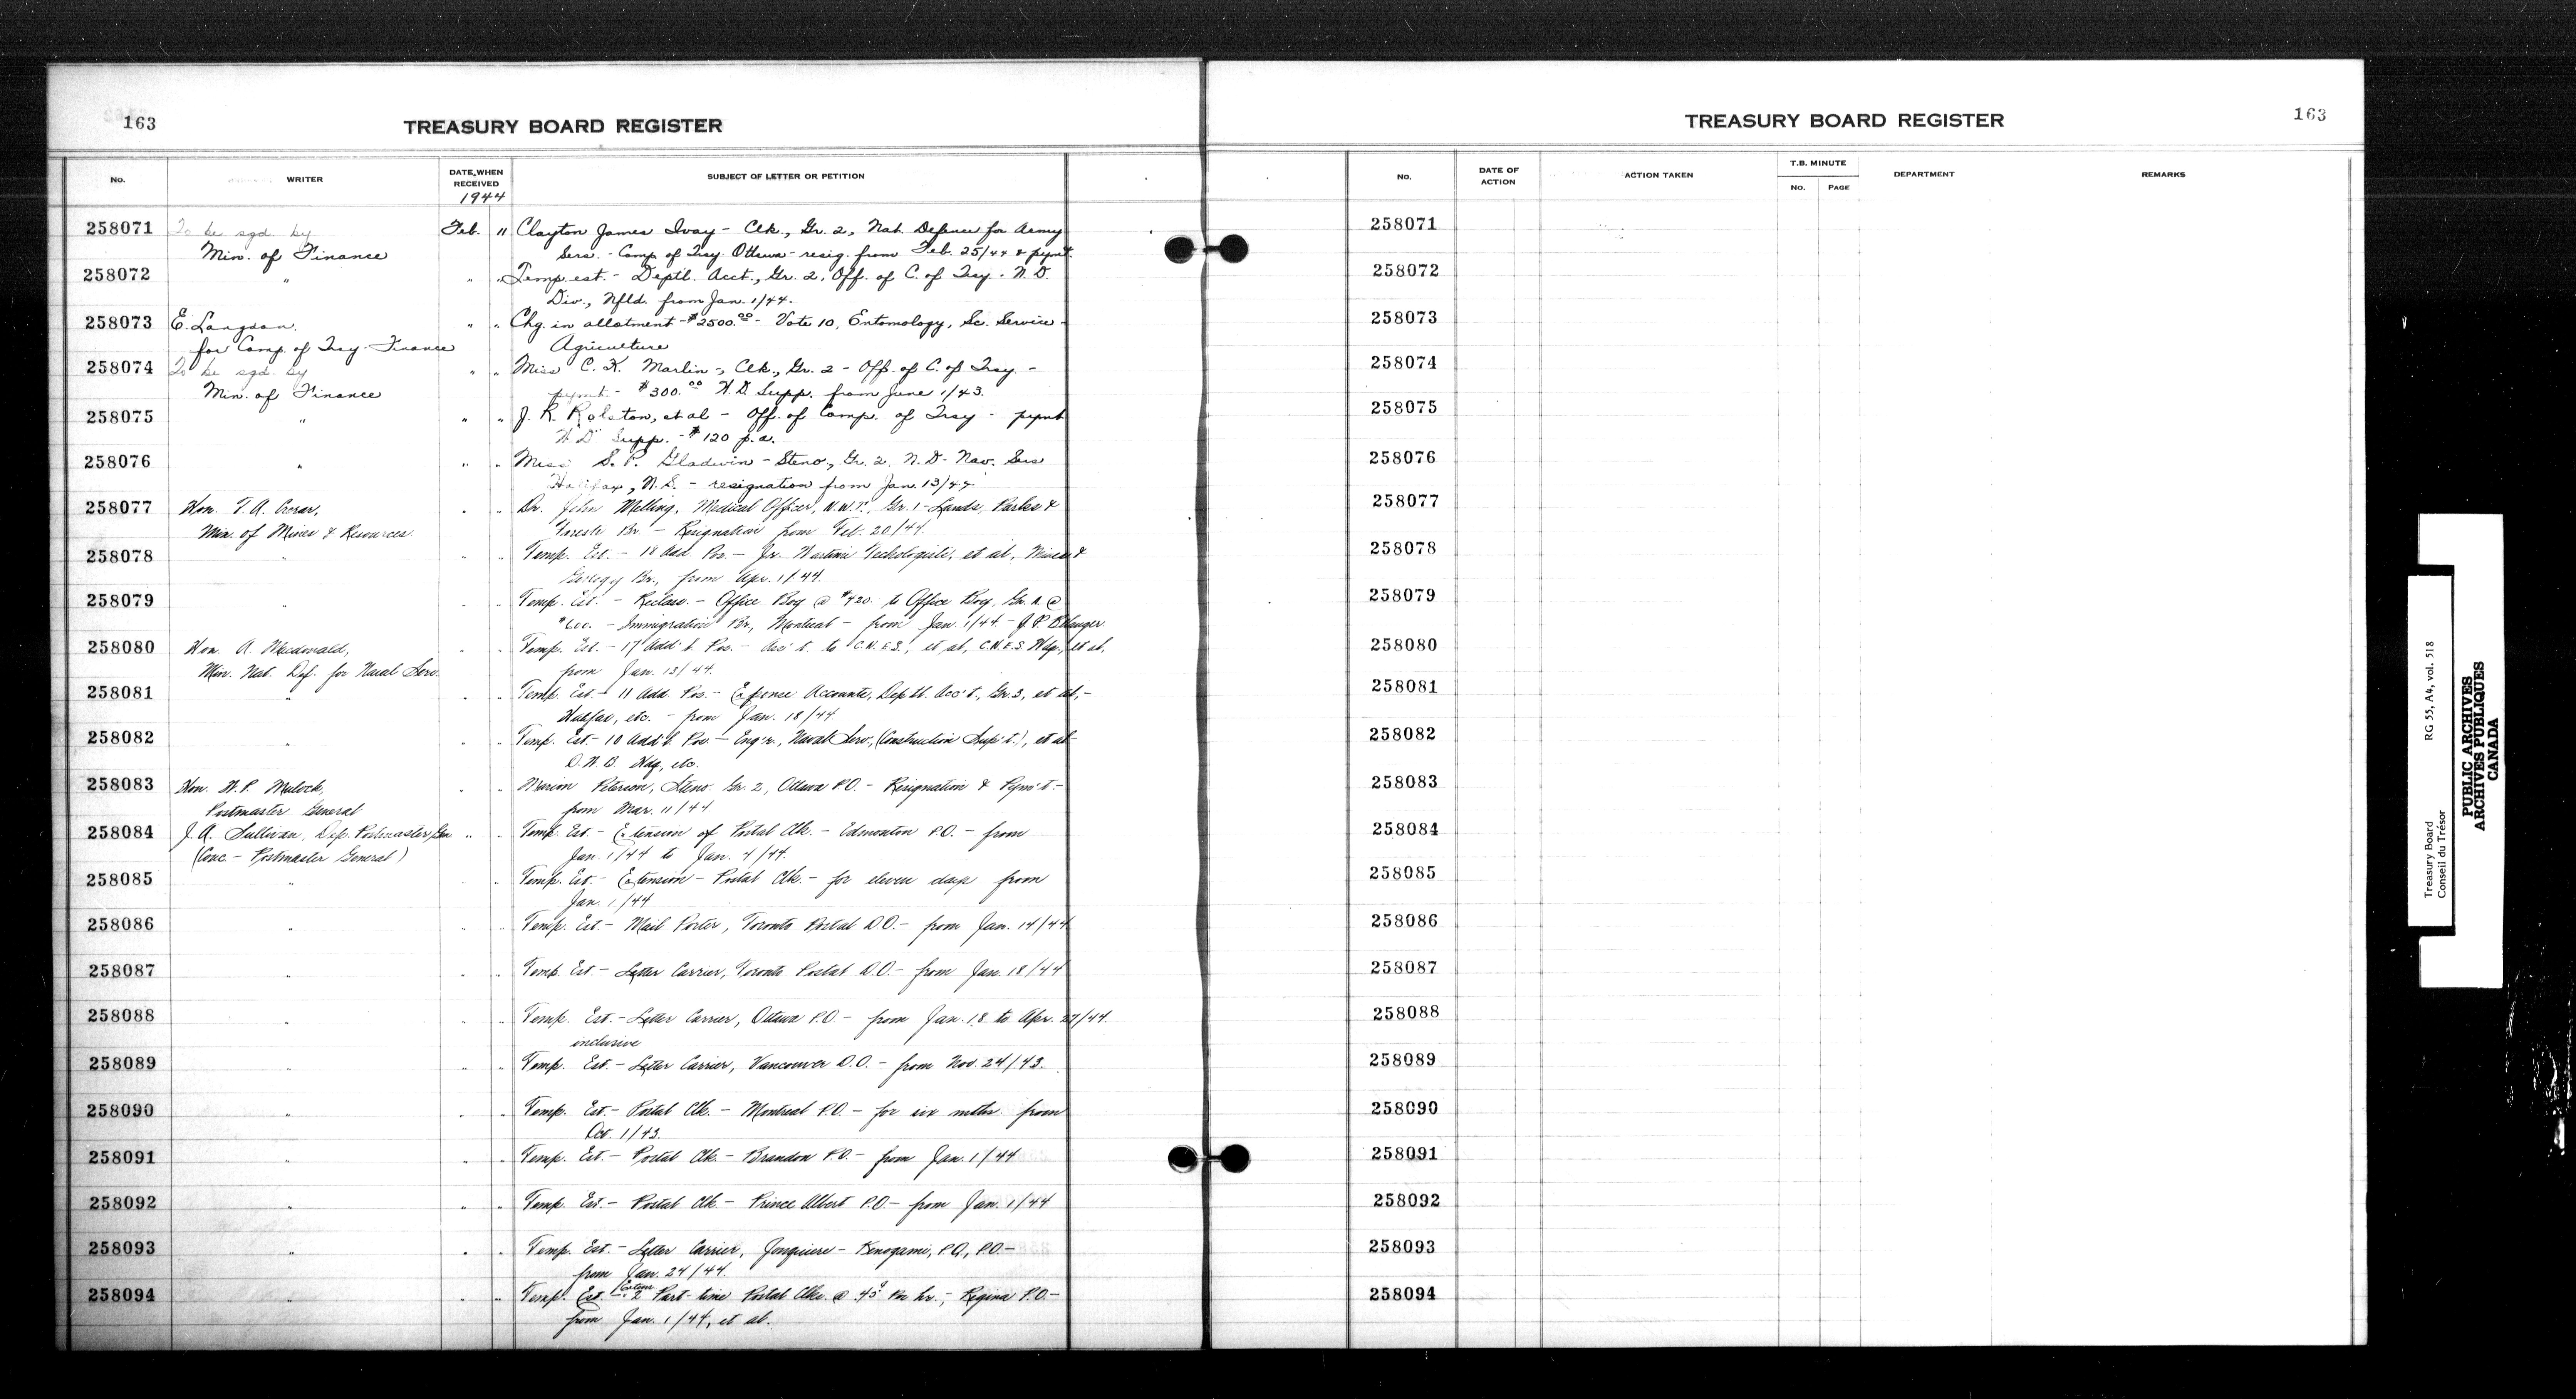 163
TREASURY BOARD REGISTER
No.
WRITER
DATE WHEN
RECEIVED
1944
SUBJECT OF LETTER OR PETITION
258071 To be sgd. by Feb. 11 Clayton James Ivay - Clk., Gr. 2, Nat. Defence for Army
Min. of Finance Serv. - Comp. of Trsy. Ottawa - resig. from Feb. 25/44 & pymt.
258072 " " " Temp. est. - Deptl. Acct., Gr. 2, Off. of C. of Trsy. - N.D.
Div., Nfld. from Jan. 1/44.
258073 E. Langdon, " " Chg. in allotment - $2500.00 - Vote 10, Entomology, Sc. Service -
for Comp. of Trsy - Finance Agriculture
258074 To be sgd. by " " Miss C. K. Marlin -, Clk., Gr. 2 - Off. of C. of Trsy. -
Min. of Finance pymt. - $300.00 W.D. Supp. from June 1/43.
258075 " " " J. R. Rolston, et al - Off. of Comp. of Trsy - pymt
W.D. Supp. - $120 p.a.
258076 " " " Miss S. P. Gladwin - Steno, Gr. 2, N.D. Nav. Serv
Halifax, N.S. - resignation from Jan. 13/44
258077 Hon. T. A. Crerar, " " Dr. John Melling, Medical Officer, N.W.T., Gr. 1 - Lands, Parks &
Min. of Mines & Resources Forests Br. - Resignation from Feb. 20/44.
258078 " " " Temp. Est. - 18 Add. Pos. - Jr. Wartime Technologists, et al, Mines &
Geology Br., from Apr. 1/44.
258079 " " " Temp. Est. - Reclass. - Office Boy @ $420. to Office Boy, Gr. A. @
$600. - Immigration Br., Montreal - from Jan. 1/44. - J. P. Belanger
258080 Hon. A. Macdonald, " " Temp. Est. - 17 Add'l. Pos. - Ass't. to C.N.E.S., et al, C.N.E.S. Hdqs., et al,
Min. Nat. Def. for Naval Serv. from Jan. 13/44.
258081 " " " Temp. Est. - 11 Add. Pos. - Expense Accounts, Deptl. Acc't., Gr. 3, et al, -
Halifax, etc. - from Jan. 18/44
258082 " " " Temp. Est. - 10 Add'l. Pos. - Eng'r., Naval Serv., (Construction Sup't.), et al
D.N.D. Hdq., etc.
258083 Hon. W. P. Mulock, " " Marion Peterson, Steno. Gr. 2, Ottawa P.O. - Resignation & Pym't. -
Postmaster General from Mar. 11/44
258084 J. A. Sullivan, Dep. Postmaster Gen. " " Temp. Est. - Extension of Postal Clk. - Edmonton P.O. - from
(Conc. - Postmaster General) Jan. 1/44 to Jan. 4/44.
258085 " " Temp. Est. - Extension - Postal Clk. - for eleven days from
Jan. 1/44
258086 " " " Temp. Est. - Mail Porter, Toronto Postal D.O. - from Jan. 14/44
258087 " " " Temp. Est. - Letter Carrier, Toronto Postal D.O. - from Jan. 18/44
258088 " " " Temp. Est. - Letter Carrier, Ottawa P.O. - from Jan. 18 to Apr. 27/44.
inclusive
258089 " " " Temp. Est. - Letter Carrier, Vancouver D.O. - from Nov. 24/43.
258090 " " " Temp. Est. - Postal Clk. - Montreal P.O. - for six mths. from
Oct. 1/43.
258091 " " " Temp. Est. - Postal Clk. - Brandon P.O. - from Jan. 1/44
258092 " " " Temp. Est. - Postal Clk. - Prince Albert P.O - from Jan. 1/44
258093 " " " Temp. Est. - Letter Carrier, Jonquiere - Kenogami, P.Q., P.O. -
from Jan. 24/44.
258094 " " " Temp. Est. - Extens. 2 Part-time Postal Clks. @ 45¢ per hr. -, Regina P.O. -
from Jan. 1/44, et al.
TREASURY BOARD REGISTER
163
No.
DATE OF
ACTION
ACTION TAKEN
T.B. MINUTE
No.
PAGE
DEPARTMENT
REMARKS
258071
258072
258073
258074
258075
258076
258077
258078
258079
258080
258081
258082
258083
258084
258085
258086
258087
258088
258089
258090
258091
258092
258093
258094
Treasury Board RG 55, A4, vol. 518
Conseil du Trésor
PUBLIC ARCHIVES
ARCHIVES PUBLIQUES
CANADA